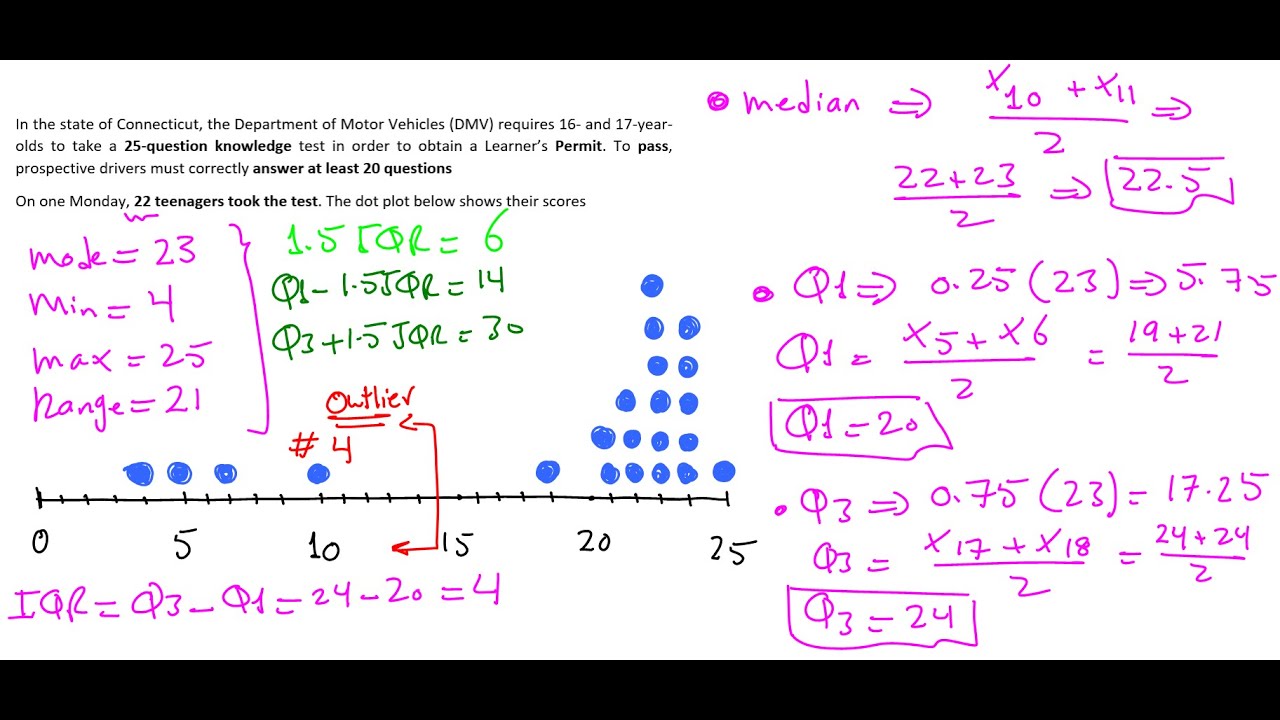 In the state of Connecticut, the Department of Motor Vehicles (DMV) requires 16- and 17-year-
olds to take a 25-question knowledge test in order to obtain a Learner's Permit. To pass,
prospective drivers must correctly answer at least 20 questions
On one Monday, 22 teenagers took the test. The dot plot below shows their scores
mode = 23
Min = 4
max = 25
Range = 21
1.5 IQR = 6
Q1 - 1.5 IQR = 14
Q3 + 1.5 IQR = 30
Outlier
# 4
0 5 10 15 20 25
IQR = Q3 - Q1 = 24 - 20 = 4
• median ⇒ (X10 + X11)/2 ⇒
(22+23)/2 ⇒ 22.5
• Q1 ⇒ 0.25 (23) ⇒ 5.75
Q1 = (X5 + X6)/2 = (19+21)/2
Q1 = 20
• Q3 ⇒ 0.75 (23) = 17.25
Q3 = (X17 + X18)/2 = (24+24)/2
Q3 = 24